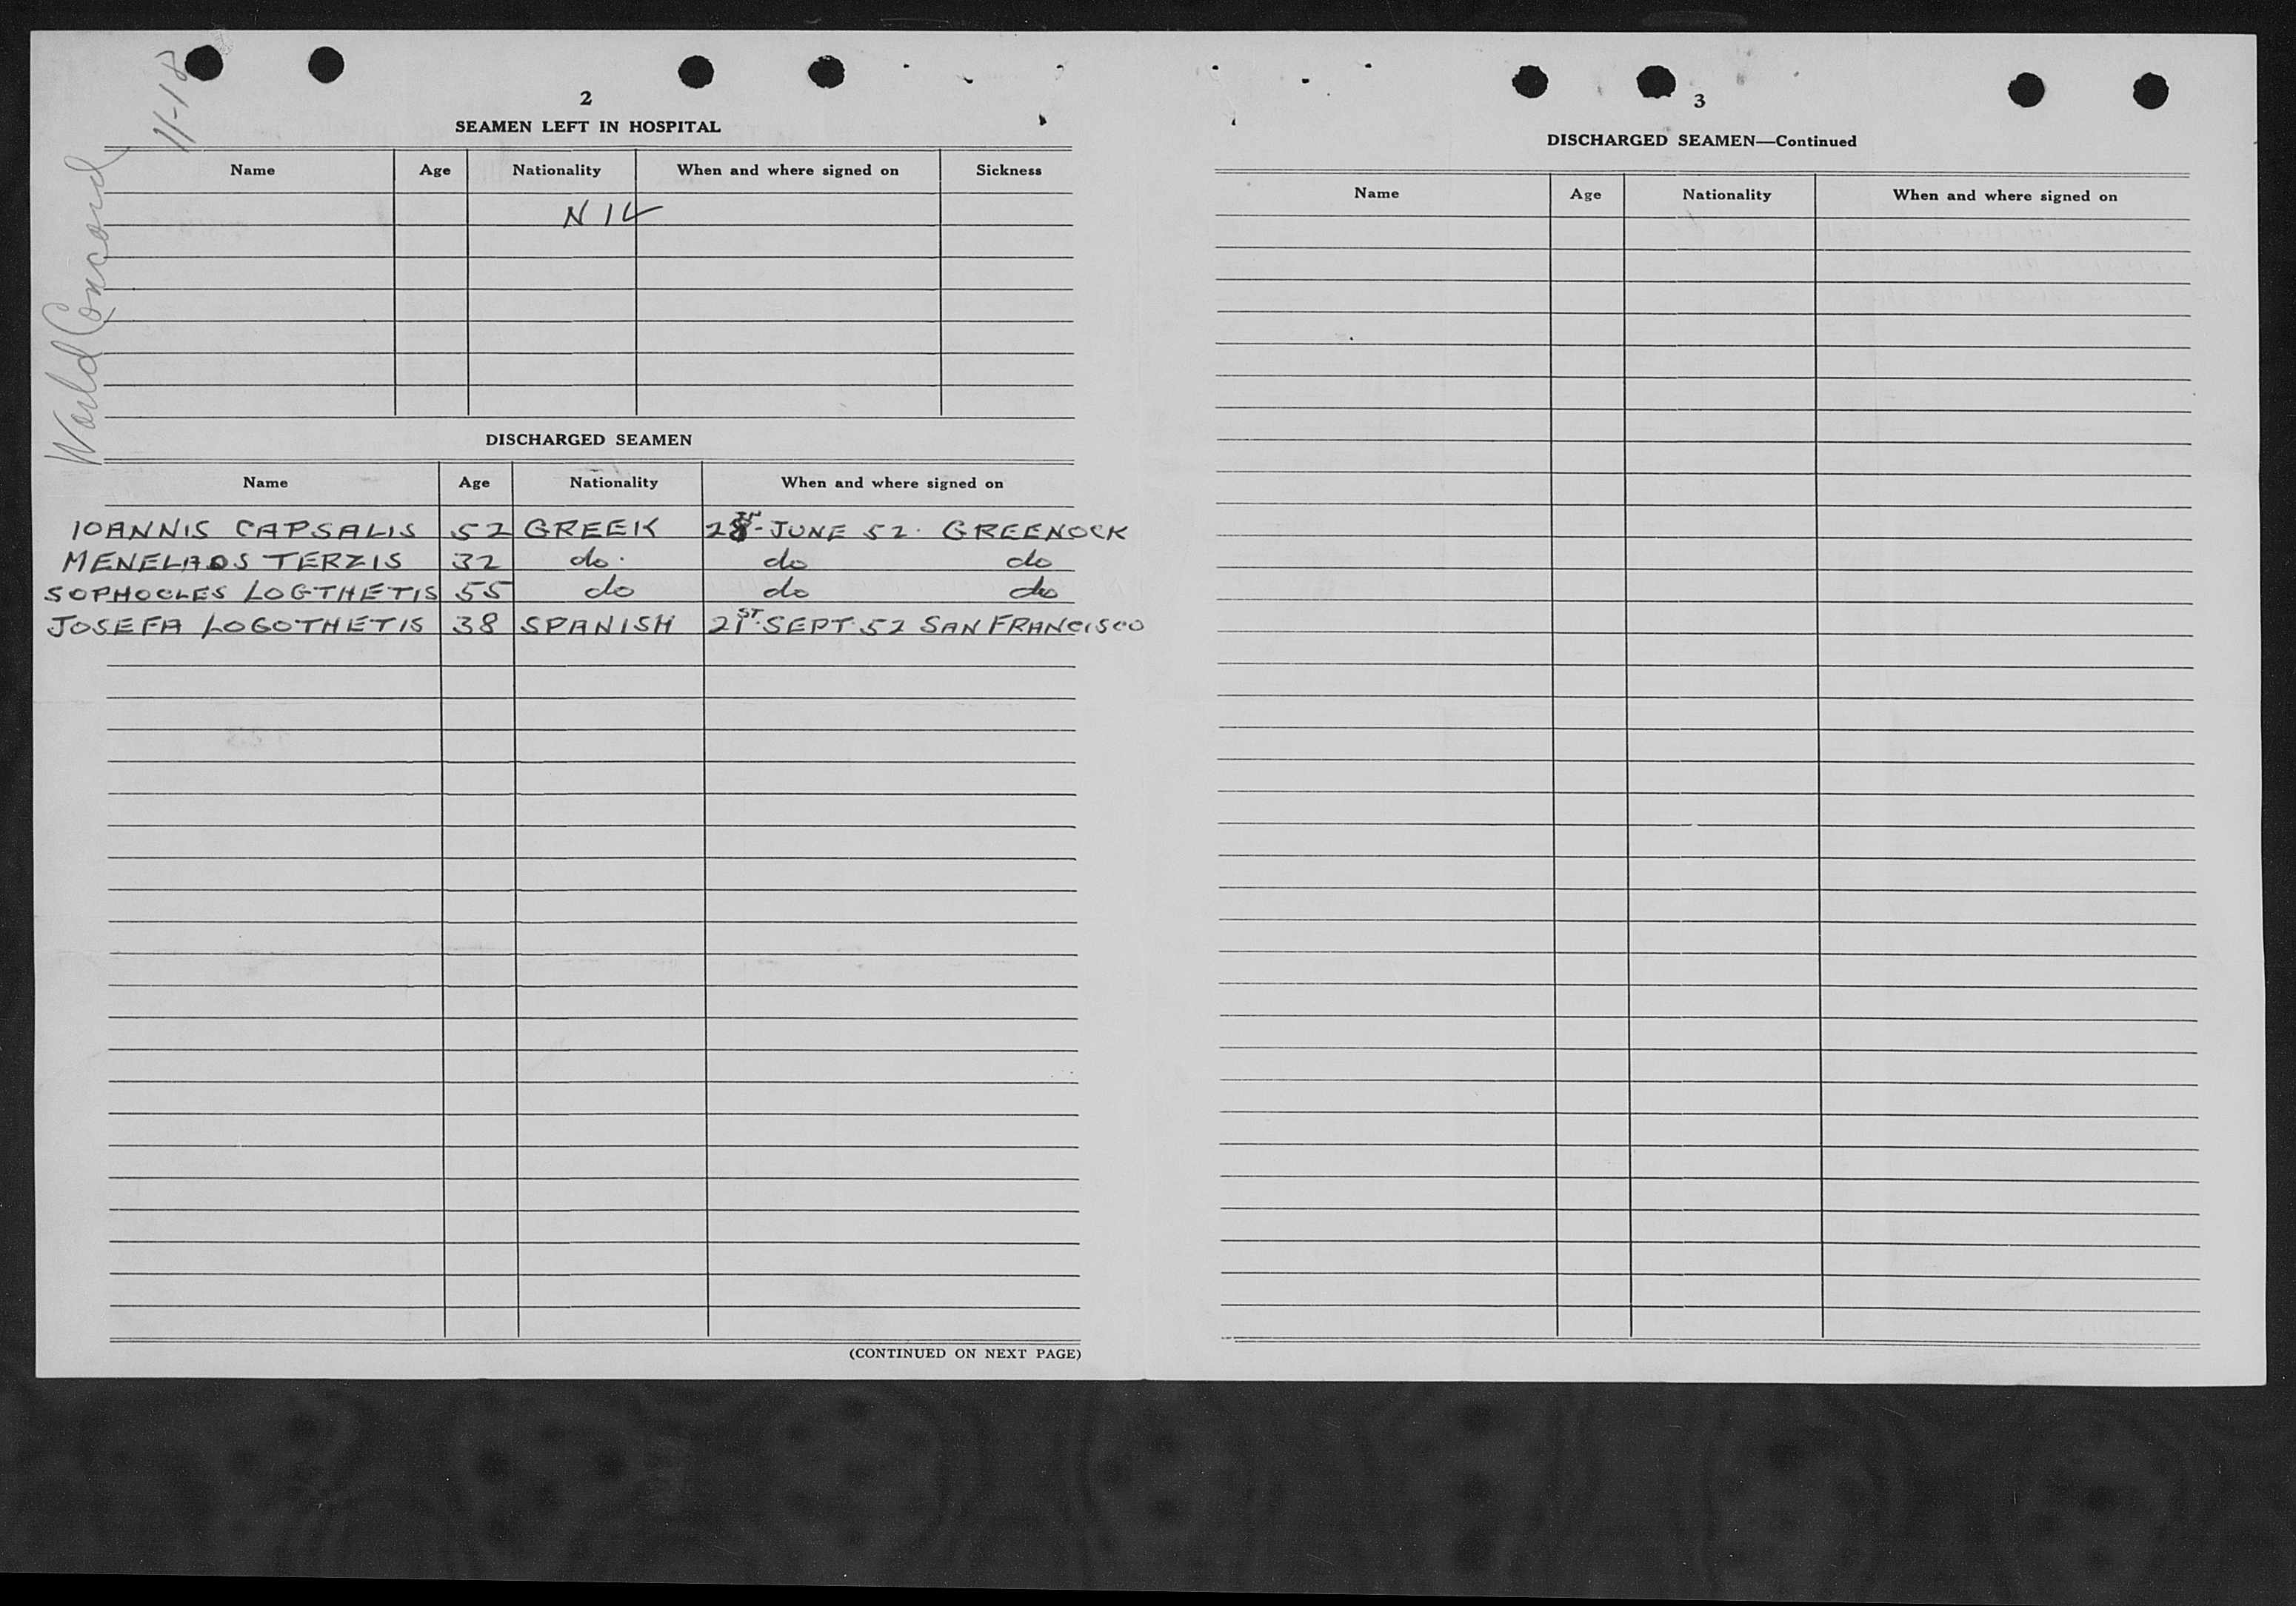 World Concord 11-18
2
SEAMEN LEFT IN HOSPITAL
Name Age Nationality When and where signed on Sickness
NIL
DISCHARGED SEAMEN
Name Age Nationality When and where signed on
IOANNIS CAPSALIS 52 GREEK JUNE 52. GREENOCK
MENELAOS TERZIS 32 do. do do
SOPHOCLES LOGTHETIS 55 do do do
JOSEFA LOGOTHETIS 38 SPANISH 21ST. SEPT. 52 SAN FRANCISCO
(CONTINUED ON NEXT PAGE)
3
DISCHARGED SEAMEN—Continued
Name Age Nationality When and where signed on